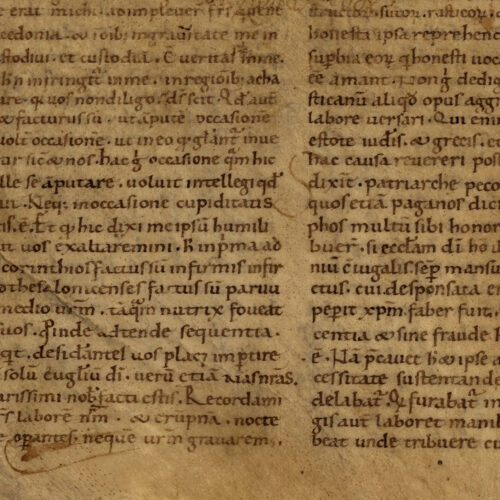 e erat michi adimpleuer̄ frs̄ q̇ uene
cedonia · & ioib; ingrauūitate me in
stodiui · et custodiā · Ē ueritas
ħn infringit̄ in me · in regioib; acha
are · q̇ uos non diligo · ds̄ scit · Qd̄ aut̄
& facturus sū · ut āputē occasionē
uolt̄ occasionē · ut in eo q̇ gl̄ant̄ inue
ar sic & nos · hac ḡ occasionē q̄m hic
lle se āputare · uoluit intellegi qd̄
ut · Neq; in occasione cupiditatis
is · ē · Et q̇ hic dixi me ipsum humili
it uos exaltaremini · R in pma ad
corinthios factus sū infirmis infir
thesalonicenses factus sum paruu
medio urm̄ · tāq̄m nutrix foueat
uos · Pinde adtende sequentia ·
qt · desidantes uos placz̄ imptire
solū eugl̄iū dī · uerū etiā aīas nras̄ ·
arissimi nob̄ facti estis · Recordami
frs̄ laborē nrm̄ · & erupna · nocte
e opantes · neque urm̄ grauarem ·
structor̄ · sutor̄ · rasticor̄ ·
honesta ipsa reprehenc
supbia eor̄ q̇ honesti uoc
ee amant · Non ḡ dediq
sticanū aliqd̄ opus agg
labore uersari · Qui enim
estote iudīs · & grecis · et
hac causa reuereri posi
dixit · patriarche peco
quos etiam paganos dic
phos multū sibi honor
buer̄ · si eccl̄am dī ho ił
niū c̄iugalis sēp mansu
ctus · cui desponsata er
pepit xp̄m · faber fuit ·
centia & sine fraude h
ē · Nā p̄cauet h & ipse a
cessitate sustentan
delabat̄ · Q̇ furabat̄ im
gis aut̄ laboret manib
beat unde tribuere cu